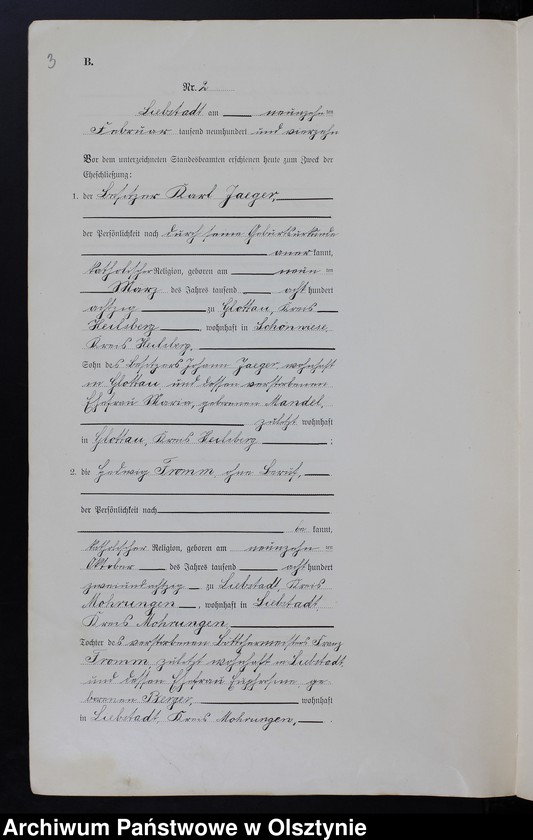 3
B.
Nr. 2
Liebstadt am neunzehnten
Februar tausend neunhundert und vierzehn
Vor dem unterzeichneten Standesbeamten erschienen heute zum Zweck der
Eheschließung:
1. der Besitzer Karl Jaeger,
der Persönlichkeit nach durch seine Geburtsurkunde
anerkannt,
katholischer Religion, geboren am neunten
März des Jahres tausend achthundert
achtzig zu Glottau, Kreis
Heilsberg, wohnhaft in Schönwiese,
Kreis Heilsberg,
Sohn des Besitzers Johann Jaeger, wohnhaft
in Glottau, und dessen verstorbenen
Ehefrau Maria, geborenen Mandel,
zuletzt wohnhaft
in Glottau, Kreis Heilsberg;
2. die Hedwig Fromm, ohne Beruf,
der Persönlichkeit nach
bekannt,
katholischer Religion, geboren am neunzehnten
Oktober des Jahres tausend achthundert
zweiundachtzig zu Liebstadt, Kreis
Mohrungen, wohnhaft in Liebstadt,
Kreis Mohrungen,
Tochter des verstorbenen Böttchermeisters Franz
Fromm, zuletzt wohnhaft in Liebstadt,
und dessen Ehefrau Euphrosine, ge-
borenen Berger, wohnhaft
in Liebstadt, Kreis Mohrungen,
Archiwum Państwowe w Olsztynie